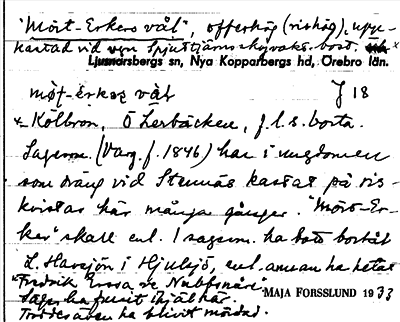 "Mört-Erkers vål", offerhög (rishög), uppe-
kastad vid vägen Spjuttjärns skogvakt.bost.
Ljusnarsbergs sn, Nya Kopparbergs hd, Örebro län.
mø̀t-ærkes vål J 18
Kölbron, Ö Lerbäcken, f.l.s. borta.
Sagesm. (Varg. f. 1846) har i ungdomen
som dräng vid Stennäs kastat på ris-
kvistar här många gånger. "Mört-Er-
ker" skall enl. 1 sagesm. ha bott bortåt
L. Havsjön i Hjulsjö, enl. annan ha hetat
Fredrik Ersa
Sages. ha funnit ihjäl här.
Troddes även ha blivit mördad.
MAJA FORSSLUND 1933